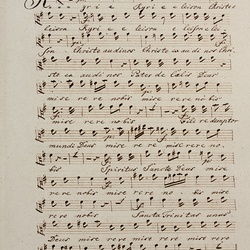 Kyri e e Kyri e e leison Christe
leison Kyri e e leison e leison elei
son Christe audi nos Christe ex audi nos Chri
ste ex audi nos Pater de Caelis Deus
mise re re nobis mise re re no bis
mi se re re no bis Fili redemptor
mundi Deus mise re re mise re re no
bis Spiritus Sancte Deus mise
re re nobis mise re re no bis mise
re re nobis Sancta Trinitas unus
Deus mise re re mise re re mise re re